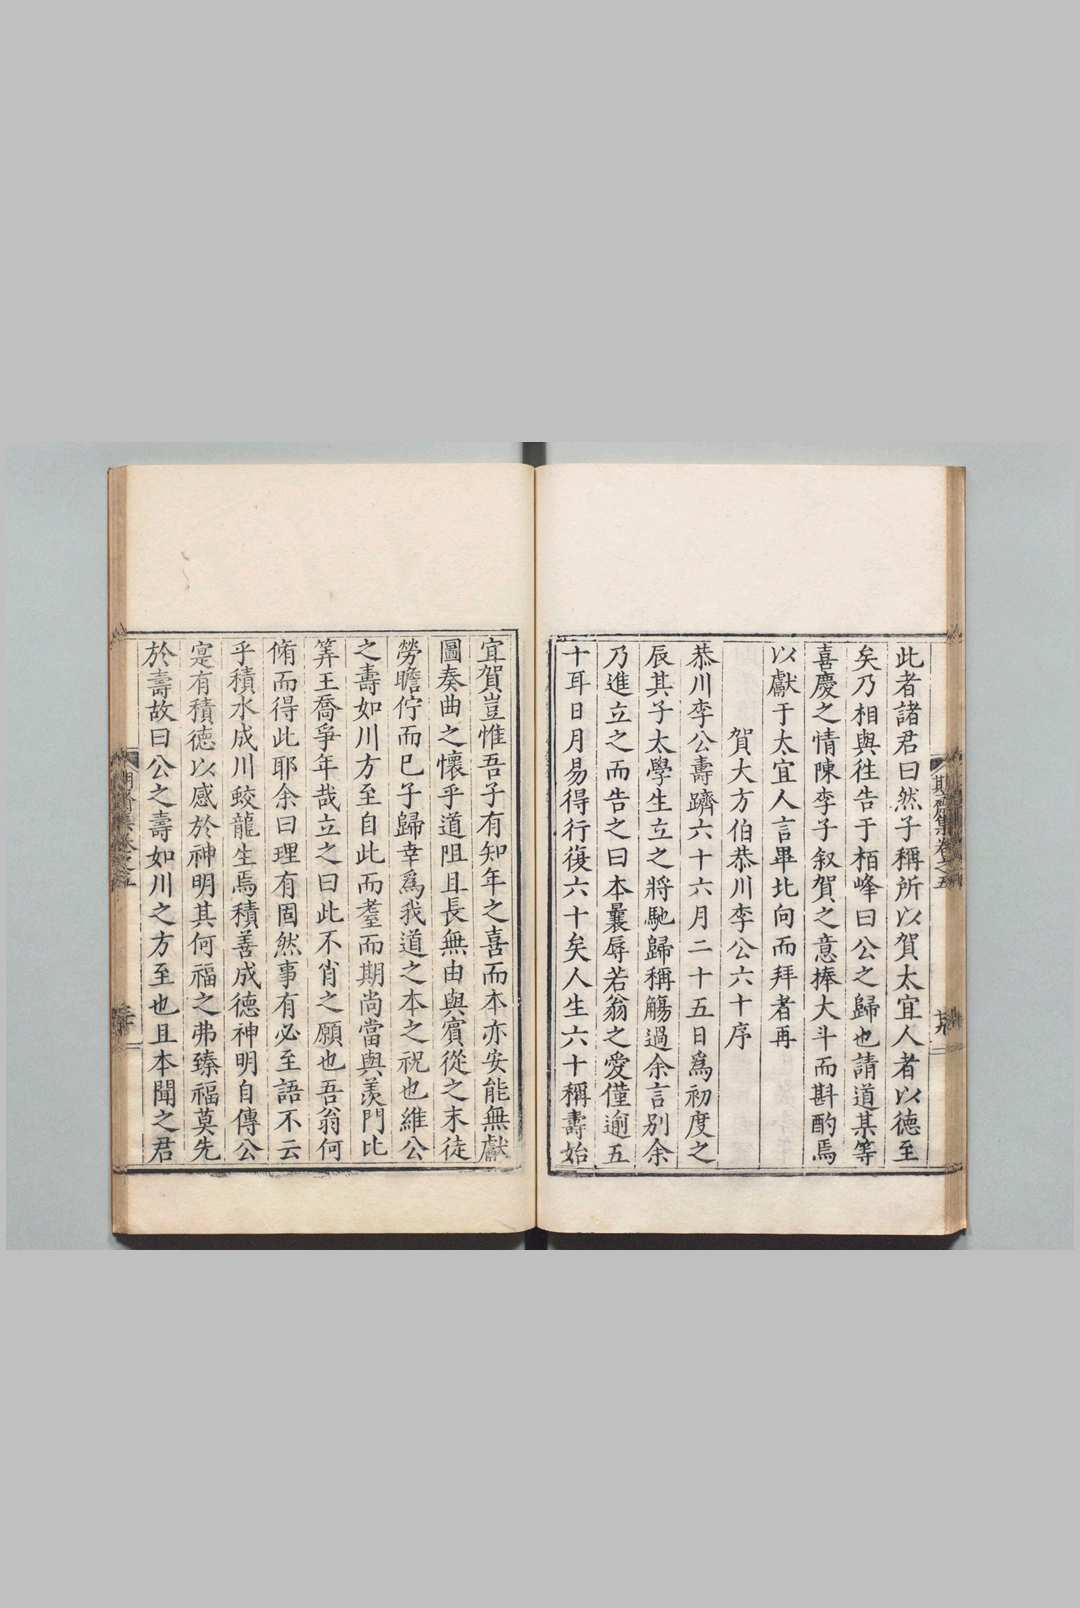 此者諸君曰然子稱所以賀太宜人者以德至
矣乃相與徃告于栢峰曰公之歸也請道某等
喜慶之情陳李子叙賀之意捧大斗而斟酌焉
以獻于太宜人言畢北向而拜者再
賀大方伯恭川李公六十序
恭川李公壽躋六十六月二十五日爲初度之
辰其子太學生立之將馳歸稱觴過余言别余
乃進立之而告之曰本曩辱若翁之愛僅逾五
十耳日月易得行復六十矣人生六十稱壽始
宜賀豈惟吾子有知年之喜而本亦安能無獻
圖奏曲之懷乎道阻且長無由與賓從之末徒
勞瞻佇而已子歸幸爲我道之本之祝也維公
之壽如川方至自此而耋而期尚當與羨門比
筭王喬爭年哉立之曰此不肖之願也吾翁何
脩而得此耶余曰理有固然事有必至語不云
乎積水成川蛟龍生焉積善成德神明自傳公
寔有積德以感於神明其何福之弗臻福莫先
於壽故曰公之壽如川之方至也且本聞之君